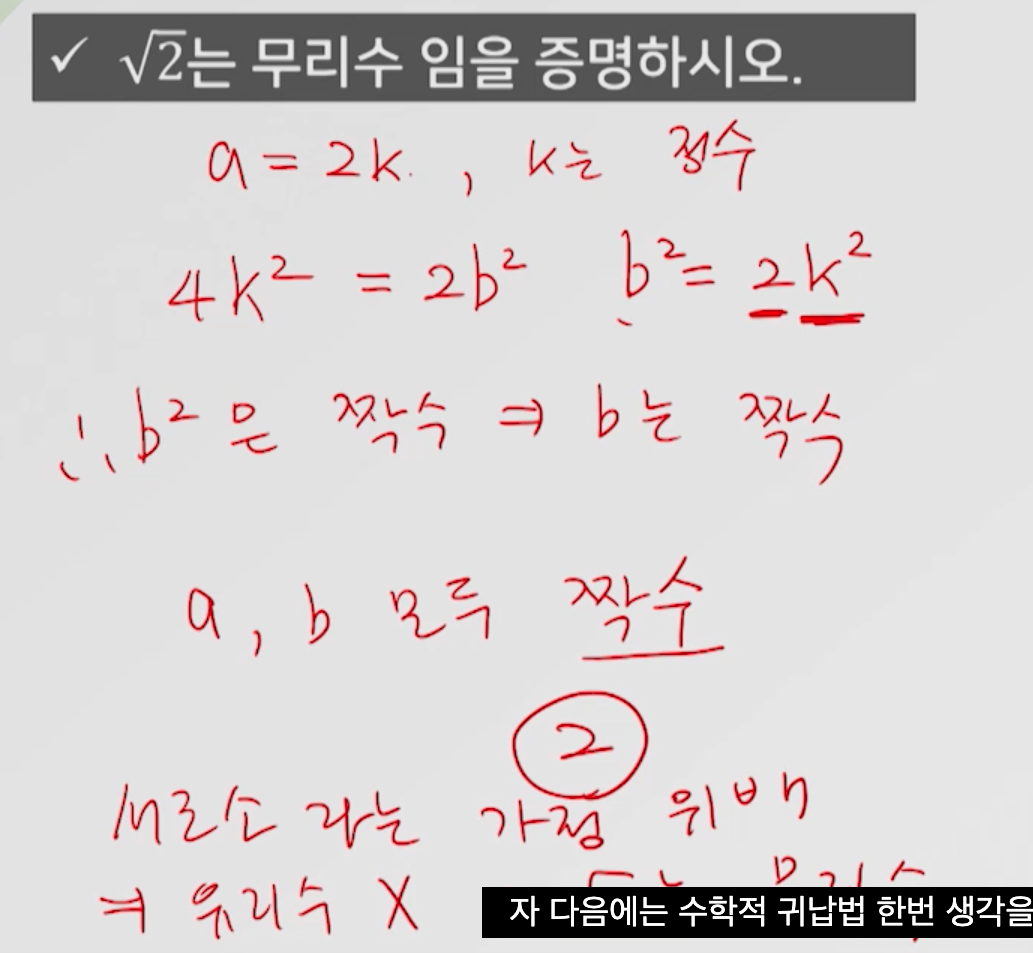 ✓ √2는 무리수 임을 증명하시오.
a = 2k. , k는 정수
4k² = 2b² b² = 2k²
∴ b²은 짝수 ⇒ b는 짝수
a, b 모두 짝수
2
서로소 라는 가정 위배
⇒ 유리수 X
자 다음에는 수학적 귀납법 한번 생각을